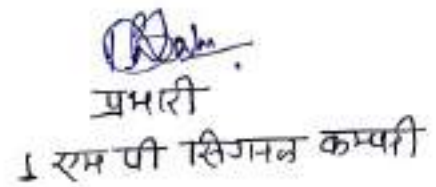 प्रभारी
1 एम पी सिगनल कम्पनी